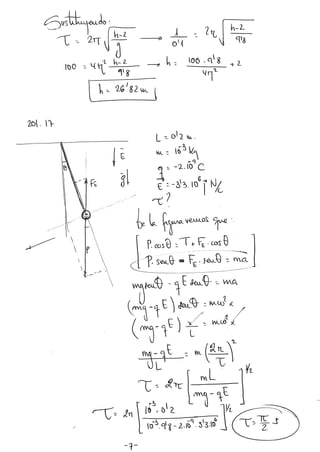 Sustituyendo:
τ = 2π √(h-2 / g) → 1/0'1 = 2π √(h-2 / 9'8)
100 = 4π² h-2 / 9'8 → h = 100 . 9'8 / 4π² + 2
h = 26'82 m
201. 17
L = 0'2 m.
m = 10⁻³ Kg
q = -2.10⁻⁹ C
E = -3'3.10⁶ j N/C
τ ?
θ
FE
E
g
P
De la figura vemos que:
P. cosθ = T + FE . cosθ
P. senθ - FE . senθ = ma
mg senθ - qE senθ = ma
(mg - qE) senθ = mω² x
(mg - qE) x/L = mω² x
mg - qE / L = m (2π / τ)²
τ = 2π [mL / mg - qE]^1/2
τ = 2π [10⁻³. 0'2 / 10⁻³. 9'8 - 2.10⁻⁹. 3'3.10⁶]^1/2 τ = π/2 s
-7-